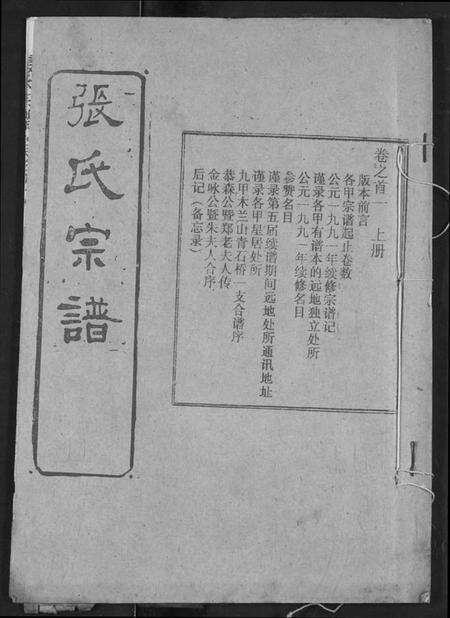 張氏宗譜
卷之首一 上册
版本前言
各甲宗谱起止卷数
公元一九九一年续修宗谱记
谨录各甲有谱本的远地独立处所
公元一九九一年续修名目
参赞名目
谨录第五届续谱期间远地处所通讯地址
谨录各甲星居处所
九甲木兰山青石桥一支合谱序
恭森公暨郑老夫人传
金咏公暨朱夫人合序
后记（备忘录）